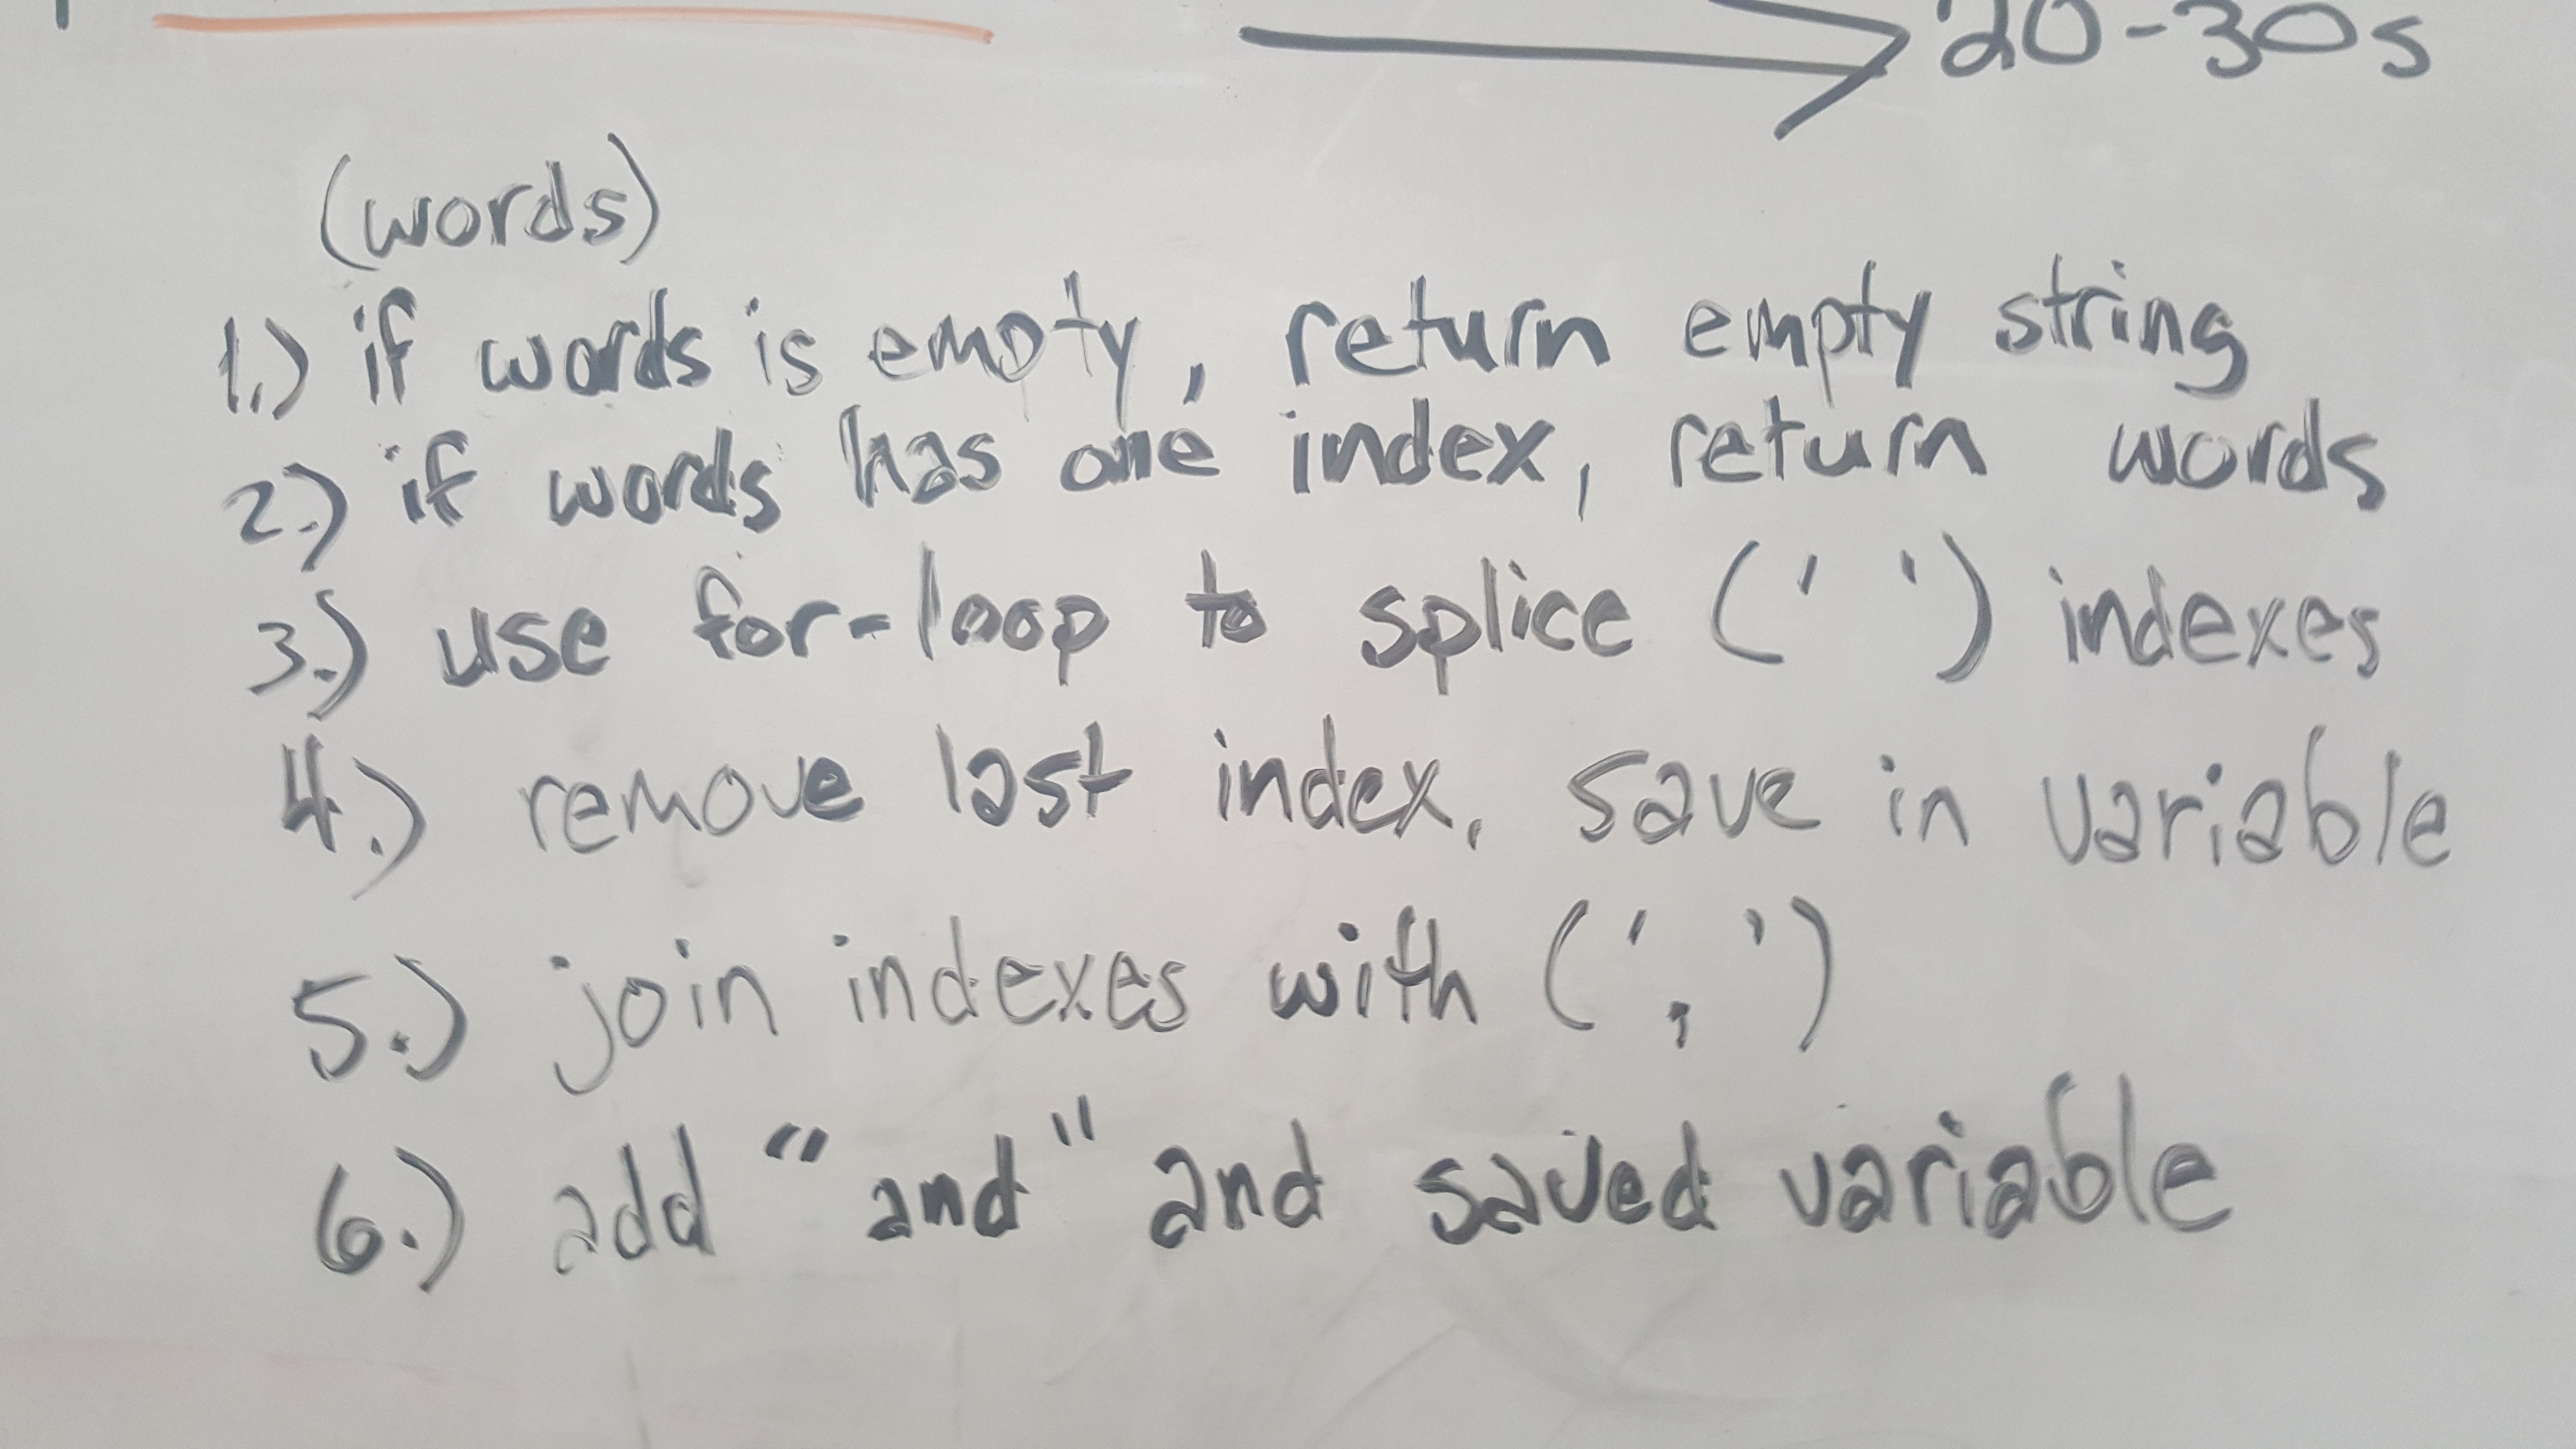 20-30s
(words)
1.) if words is empty, return empty string
2.) if words has one index, return words
3.) use for-loop to splice (' ') indexes
4.) remove last index, save in variable
5.) join indexes with (', ')
6.) add "and" and saved variable